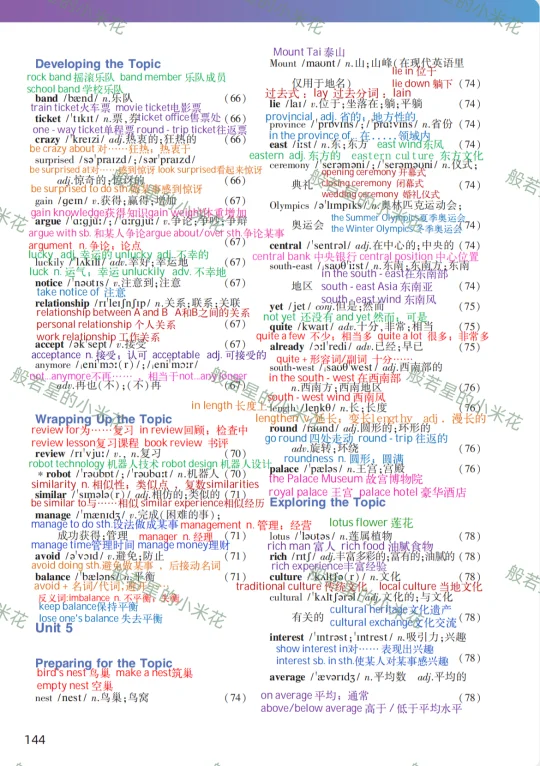 Developing the Topic
rock band 摇滚乐队 band member 乐队成员
school band 学校乐队
band /bænd/ n.乐队 (66)
train ticket火车票 movie ticket电影票
ticket /ˈtɪkɪt/ n.票、券 ticket office售票处 (66)
one - way ticket单程票 round - trip ticket往返票
crazy /ˈkreɪzi/ adj.热衷的;狂热的 (66)
be crazy about 对……狂热;热衷于
surprised /səˈpraɪzd/;/sərˈpraɪzd/
be surprised at对……感到惊讶 look surprised看起来惊讶
adj.惊奇的;惊讶的 (66)
be surprised to do sth.做某事感到惊讶
gain /ɡeɪn/ v.获得;赢得;增加 (67)
gain knowledge获得知识 gain weight体重增加
argue /ˈɑːɡjuː/;/ˈɑːrɡjuː/ v.争论;争吵;争辩
argue with sb. 和某人争论argue about/over sth.争论某事
argument n. 争论;论点 (67)
lucky adj. 幸运的 unlucky adj. 不幸的
luckily /ˈlʌkɪli/ adv.幸好;幸运地 (67)
luck n. 运气;幸运 unluckily adv. 不幸地
notice /ˈnəʊtɪs/ v.注意到;注意 (67)
take notice of 注意
relationship /rɪˈleɪʃnʃɪp/ n.关系;联系;关联
relationship between A and B A和B之间的关系
personal relationship 个人关系 (67)
work relationship 工作关系
accept /əkˈsept/ v.接受 (67)
acceptance n. 接受;认可 acceptable adj. 可接受的
anymore /ˌeniˈmɔː(r)/;/ˌeniˈmɔːr/
not...anymore不再…… ,相当于not...any longer
adv.再也(不);(不)再 (67)
in length 长度上
Wrapping Up the Topic
review for为……复习 in review回顾;检查中
review lesson复习课程 book review 书评
review /rɪˈvjuː/ v., n.复习 (70)
robot technology 机器人技术 robot design 机器人设计
* robot /ˈrəʊbɒt/;/ˈrəʊbɑːt/ n.机器人 (70)
similarity n. 相似性;类似点 ,复数similarities
similar /ˈsɪmələ(r)/ adj.相仿的;类似的 (71)
be similar to与……相似 similar experience相似经历
manage /ˈmænɪdʒ/ v.完成(困难的事);
manage to do sth.设法做成某事 management n. 管理;经营
成功获得;管理 manager n. 经理 (71)
manage time管理时间 manage money理财
avoid /əˈvɔɪd/ v.避免;防止 (71)
avoid doing sth.避免做某事 ,后接动名词
balance /ˈbæləns/ n.平衡 (71)
avoid + 名词/代词:避开
反义词:imbalance n. 不平衡;失衡
keep balance保持平衡
lose one's balance 失去平衡
Unit 5
Preparing for the Topic
bird's nest 鸟巢 make a nest筑巢
empty nest 空巢
nest /nest/ n.鸟巢;鸟窝 (74)
144
Mount Tai 泰山
Mount /maʊnt/ n.山;山峰(在现代英语里
lie in 位于
仅用于地名) lie down 躺下 (74)
过去式:lay 过去分词:lain
lie /laɪ/ v.位于;坐落在;躺;平躺 (74)
provincial adj. 省的;地方性的
province /ˈprɒvɪns/;/ˈprɑːvɪns/ n.省份 (74)
in the province of 在.....领域内
east /iːst/ n.东;东方 east wind东风 (74)
eastern adj. 东方的 eastern culture 东方文化
ceremony /ˈserəməni/;/ˈserəməʊni/ n.仪式;
opening ceremony 开幕式
典礼 closing ceremony 闭幕式 (74)
wedding ceremony 婚礼仪式
Olympics /əˈlɪmpɪks/ n.奥林匹克运动会;
the Summer Olympics夏季奥运会
奥运会 the Winter Olympics冬季奥运会 (74)
central /ˈsentrəl/ adj.在中心的;中央的 (74)
central bank 中央银行 central position 中心位置
south-east /ˌsaʊθˈiːst/ n.东南;东南方;东南
in the south - east在东南部
地区 south - east Asia 东南亚 (74)
south - east wind 东南风
yet /jet/ conj.但是;然而 (75)
not yet 还没有 and yet 然而;可是
quite /kwaɪt/ adv.十分,非常;相当 (75)
quite a few 不少;相当多 quite a lot 很多;非常多
already /ɔːlˈredi/ adv.已经;早已 (75)
quite + 形容词/副词 十分……
south-west /ˌsaʊθˈwest/ adj.西南部的
in the south - west 在西南部
n.西南方;西南地区 (76)
south - west wind 西南风
length /leŋkθ/ n.长;长度 (76)
lengthen v. 延长;变长 lengthy adj. 漫长的
round /raʊnd/ adj.圆形的;环形的
go round 四处走动 round - trip 往返的
adv.旋转;环绕 (76)
roundness n. 圆形;圆满
palace /ˈpæləs/ n.王宫;宫殿 (76)
the Palace Museum 故宫博物院
royal palace 王宫 palace hotel 豪华酒店
Exploring the Topic
lotus flower 莲花
lotus /ˈləʊtəs/ n.莲属植物 (78)
rich man 富人 rich food 油腻食物
rich /rɪtʃ/ adj.丰富多彩的;富有的;油腻的 (78)
rich experience丰富经验
culture /ˈkʌltʃə(r)/ n.文化 (78)
traditional culture 传统文化 local culture 当地文化
cultural /ˈkʌltʃərəl/ adj.文化的;与文化
cultural heritage文化遗产
有关的 cultural exchange文化交流 (78)
interest /ˈɪntrəst;ˈɪntrest/ n.吸引力;兴趣
show interest in对…… 表现出兴趣
interest sb. in sth.使某人对某事感兴趣 (78)
average /ˈævərɪdʒ/ n.平均数 adj.平均的
on average 平均;通常 (78)
above/below average 高于 / 低于平均水平
般若星的小米花